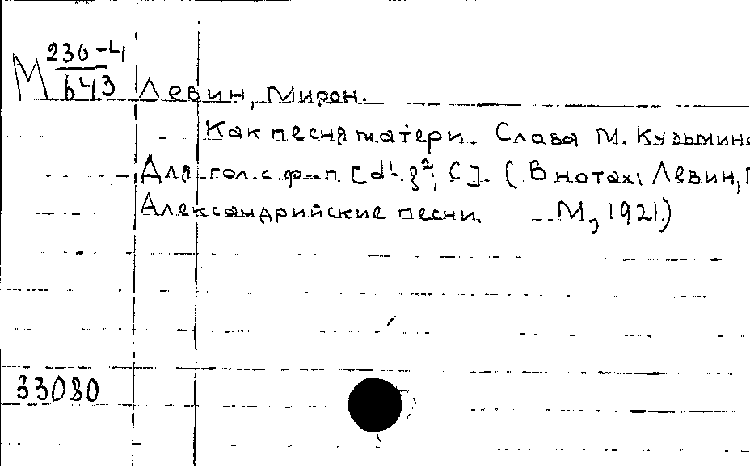 М 230-4
643 Левин, Мирон.
Как песня матери. Слова М. Кузьмина
Для гол. с ф-п. [d¹. g²; C]. (В нотах: Левин,
Александрийские песни. М., 1921.)
33080